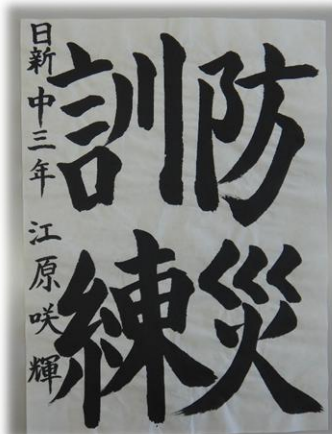 防災
訓練
日新中三年 江原咲輝